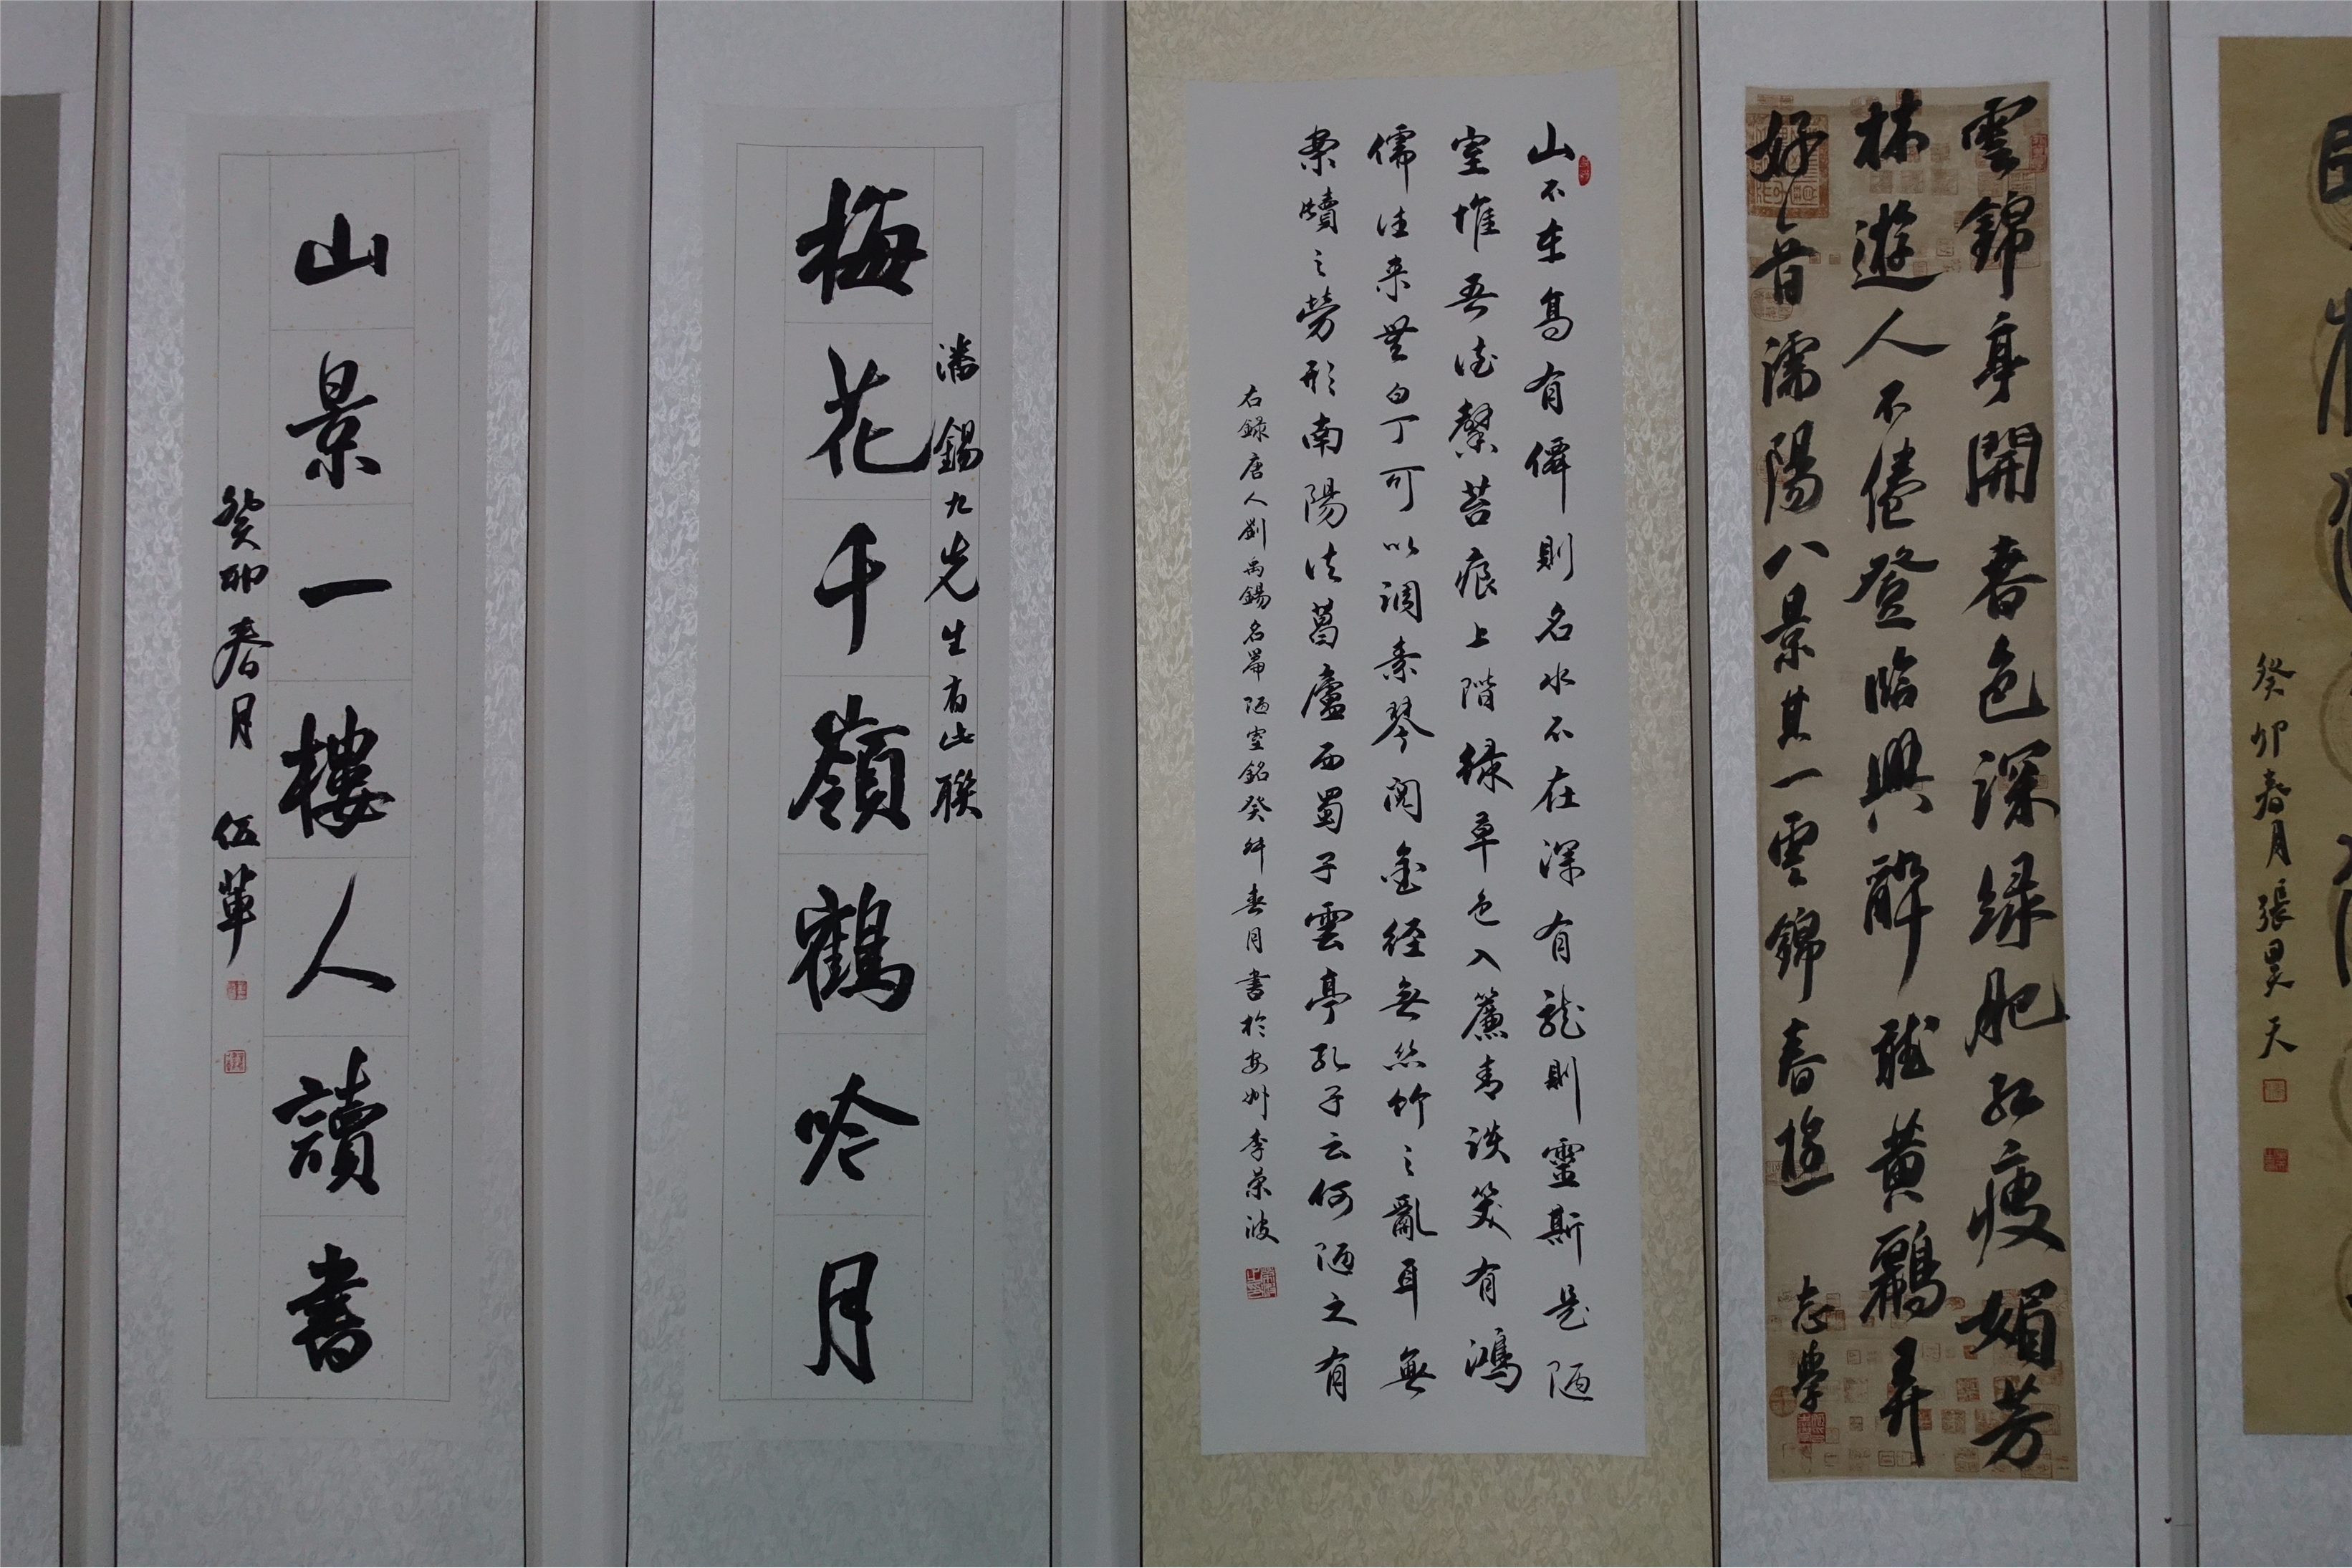 癸卯春月張昊天
雲錦亭開春色深綠肥紅瘦媚芳
林遊人不倦登臨興醉聽黃鸝弄
好音 濡陽八景其一雲錦春遊 志學
山不在高有僊則名水不在深有龍則靈斯是陋
室惟吾德馨苔痕上階緑草色入簾青談笑有鴻
儒往来無白丁可以調素琴閱金經無絲竹之亂耳無
案牘之勞形南陽諸葛廬西蜀子雲亭孔子云何陋之有
右錄唐人劉禹錫名篇陋室銘癸卯春月書於安州李榮波
潘錫九先生有此聯
梅花千嶺鶴吟月
山景一樓人讀書
癸卯春月 伍華